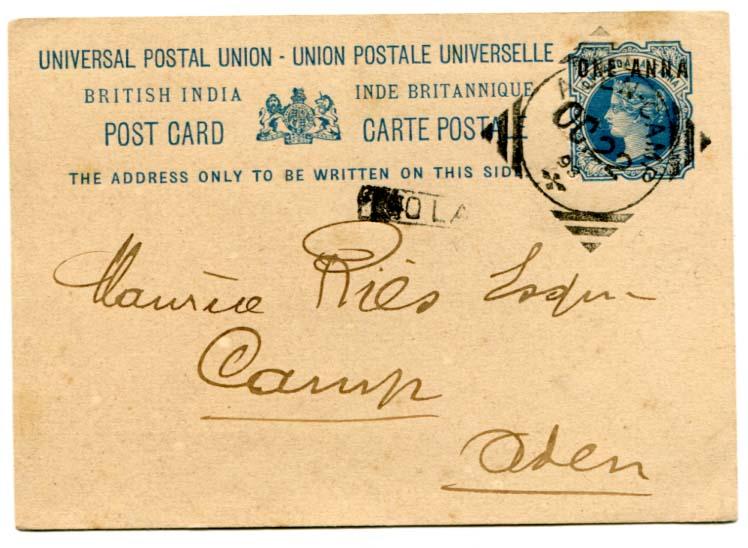 UNIVERSAL POSTAL UNION - UNION POSTALE UNIVERSELLE
BRITISH INDIA INDE BRITANNIQUE
POST CARD CARTE POSTALE
THE ADDRESS ONLY TO BE WRITTEN ON THIS SIDE
ONE ANNA
ADEN-CAMP
OC 22
Maurice Riès Esqre
Camp
Aden